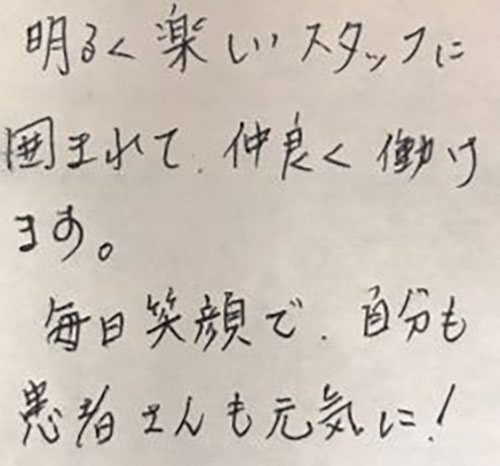 明るく楽しいスタッフに
囲まれて、仲良く働け
ます。
毎日笑顔で、自分も
患者さんも元気に!